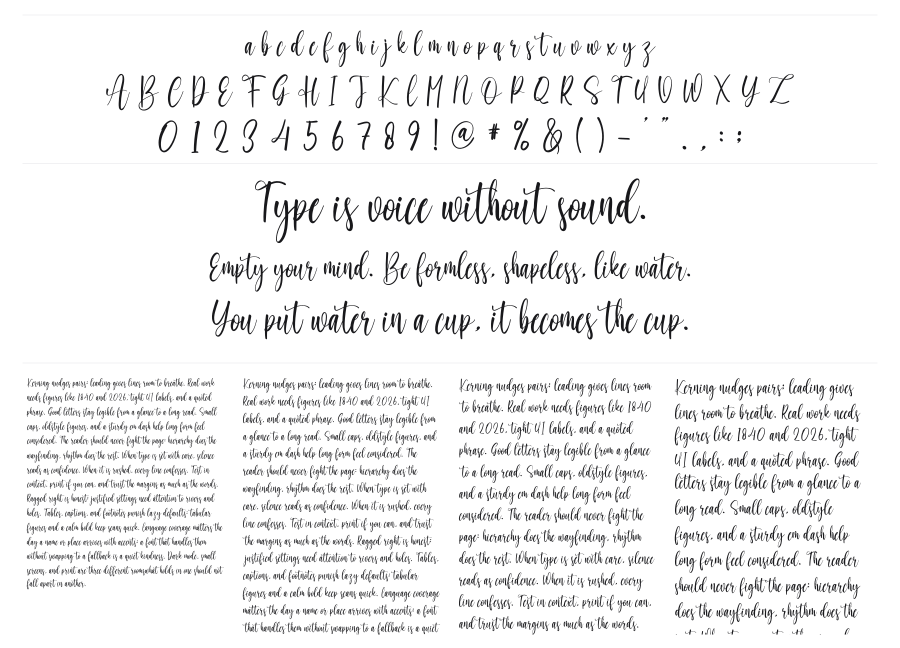 a b c d e f g h i j k l m n o p q r s t u v w x y z
A B C D E F G H I J K L M N O P Q R S T U V W X Y Z
0 1 2 3 4 5 6 7 8 9 ! @ * % & ( ) - ' " . , : ;
Type is voice without sound.
Empty your mind. Be formless, shapeless, like water.
You put water in a cup, it becomes the cup.
Kerning nudges pairs; leading gives lines room to breathe. Real work
needs figures like 18:40 and 2026, tight UI labels, and a quoted
phrase. Good letters stay legible from a glance to a long read. Small
caps, oldstyle figures, and a sturdy em dash help long form feel
considered. The reader should never fight the page; hierarchy does the
wayfinding, rhythm does the rest. When type is set with care, silence
reads as confidence. When it is rushed, every line confesses. Test in
context, print if you can, and trust the margins as much as the words.
Ragged right is honest; justified settings need attention to rivers and
holes. Tables, captions, and footnotes punish lazy defaults; tabular
figures and a calm bold keep scans quick. Language coverage matters the
day a name or place arrives with accents; a font that handles them
without swapping to a fallback is a quiet kindness. Dark mode, small
screens, and print are three different rooms; what holds in one should not
fall apart in another.
Kerning nudges pairs; leading gives lines room to breathe.
Real work needs figures like 18:40 and 2026, tight UI
labels, and a quoted phrase. Good letters stay legible from
a glance to a long read. Small caps, oldstyle figures, and
a sturdy em dash help long form feel considered. The
reader should never fight the page; hierarchy does the
wayfinding, rhythm does the rest. When type is set with
care, silence reads as confidence. When it is rushed, every
line confesses. Test in context, print if you can, and trust
the margins as much as the words. Ragged right is honest;
justified settings need attention to rivers and holes. Tables,
captions, and footnotes punish lazy defaults; tabular
figures and a calm bold keep scans quick. Language coverage
matters the day a name or place arrives with accents; a font
that handles them without swapping to a fallback is a quiet
Kerning nudges pairs; leading gives lines room
to breathe. Real work needs figures like 18:40
and 2026, tight UI labels, and a quoted
phrase. Good letters stay legible from a glance
to a long read. Small caps, oldstyle figures,
and a sturdy em dash help long form feel
considered. The reader should never fight the
page; hierarchy does the wayfinding, rhythm
does the rest. When type is set with care, silence
reads as confidence. When it is rushed, every
line confesses. Test in context, print if you can,
and trust the margins as much as the words.
Kerning nudges pairs; leading gives
lines room to breathe. Real work needs
figures like 18:40 and 2026, tight
UI labels, and a quoted phrase. Good
letters stay legible from a glance to a
long read. Small caps, oldstyle
figures, and a sturdy em dash help
long form feel considered. The reader
should never fight the page; hierarchy
does the wayfinding, rhythm does the